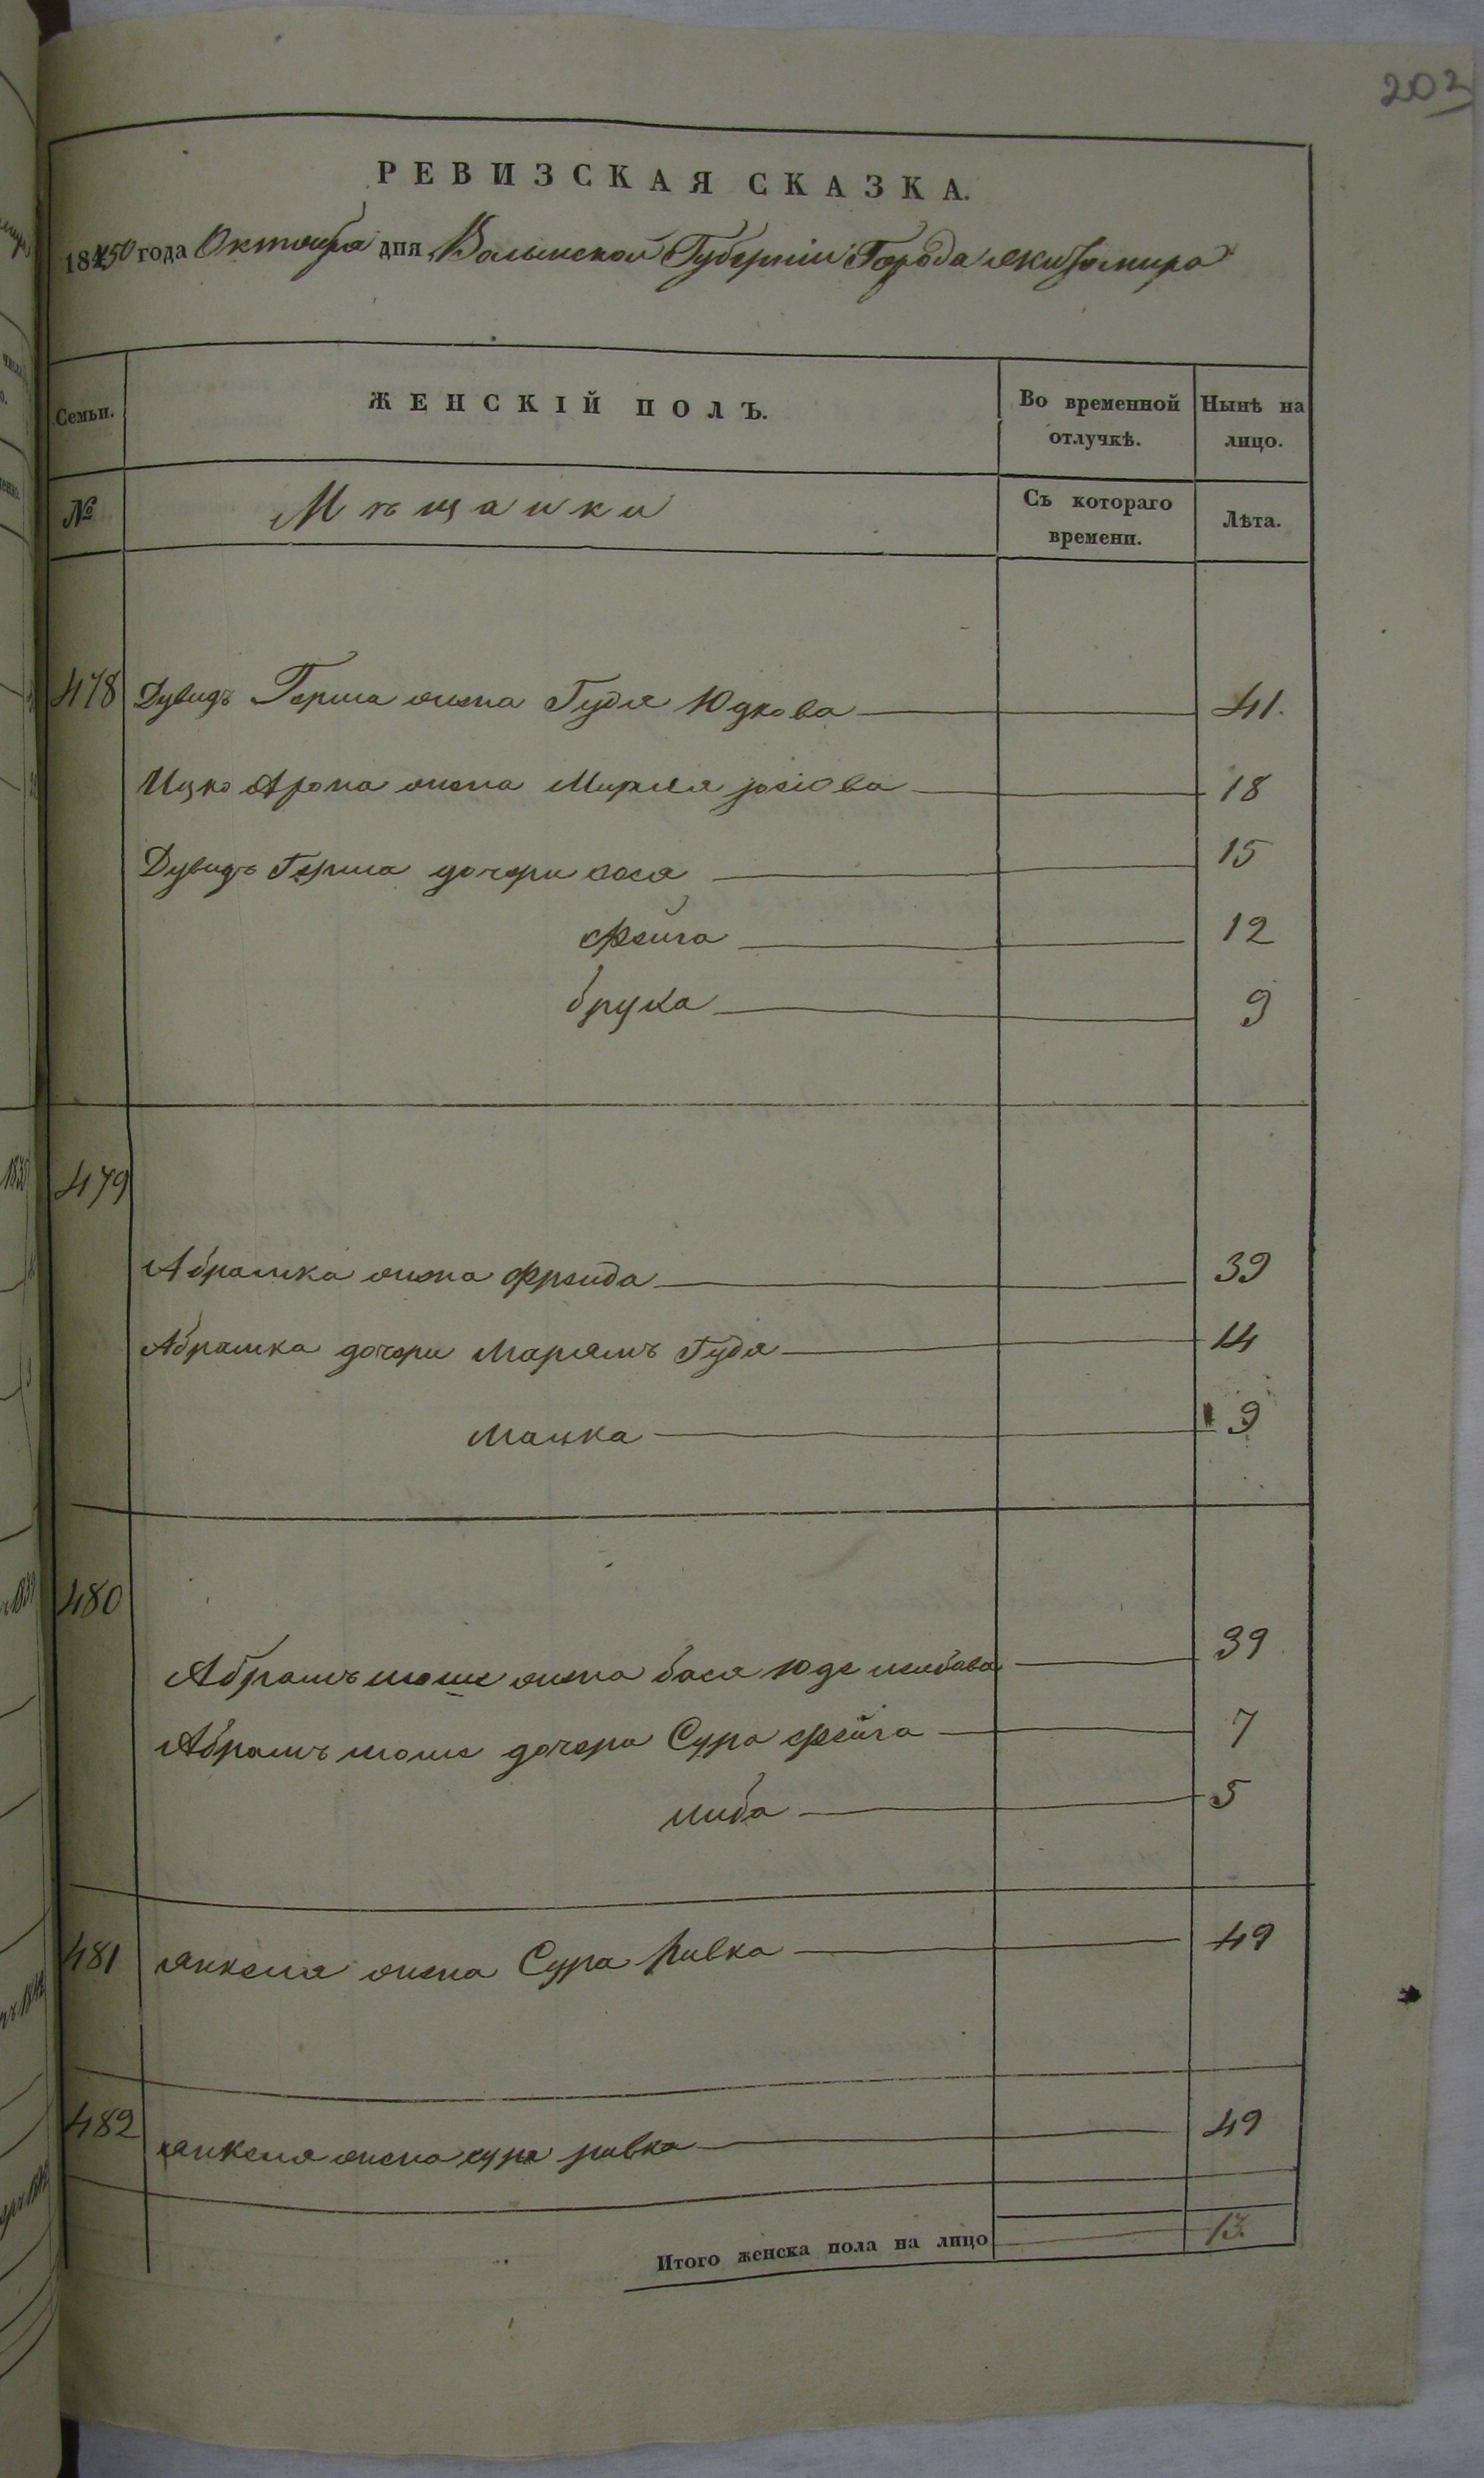 202
РЕВИЗСКАЯ СКАЗКА.
1850 года Октября дня Волынской Губерніи Города Житомира
Семьи. ЖЕНСКІЙ ПОЛЪ. Во временной отлучкѣ. Нынѣ на лицо.
№ Мѣщанки Съ котораго времени. Лѣта.
478 Дувидъ Герша жена Гудя Юдкова 41.
Ицко Арона жена Мирля 18
Дувидъ Герша дочери Бася 15
Фейга 12
бруха 9
479
Абрамка жена Фрейда 39
Абрамка дочери Марьямъ Гудя 14
Малка 9
480
Абрамъ моше жена бася Юде лейбова 39
Абрамъ моше дочери Сура фейга 7
либа 5
481 янкеля жена Сура Ривка 49
482 янкеля жена сура ривка 49
Итого женска пола на лицо 13.